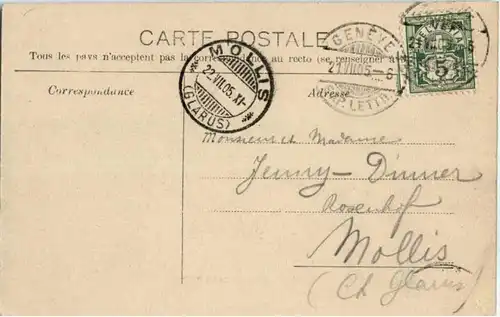 CARTE POSTALE
Tous les pays n'acceptent pas la correspondance au recto (se renseigner à
Correspondance
Adresse
MOLLIS
22.VII.05.XI-
(GLARUS)
GENÈVE
21.VII.05-6
EXP. LETTR.
HELVETIA
5
Monsieur et Madame
Jenny-Dinner
Rosenhof
Mollis
(Ct Glarus)